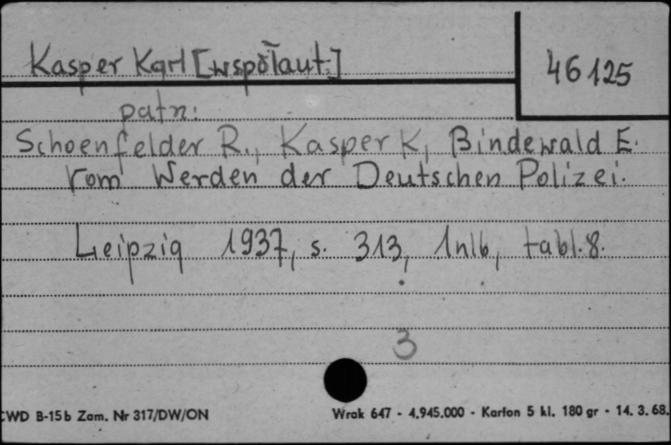 Kasper Karl [współaut.]
46125
patrz:
Schoenfelder R., Kasper K, Bindewald E.
Vom Werden der Deutschen Polizei.
Leipzig 1937, s. 313, 1nlb, tabl. 8.
3
CWD B-15b Zam. Nr 317/DW/ON
Wrak 647 - 4.945.000 - Karton 5 kl. 180 gr - 14. 3. 68.